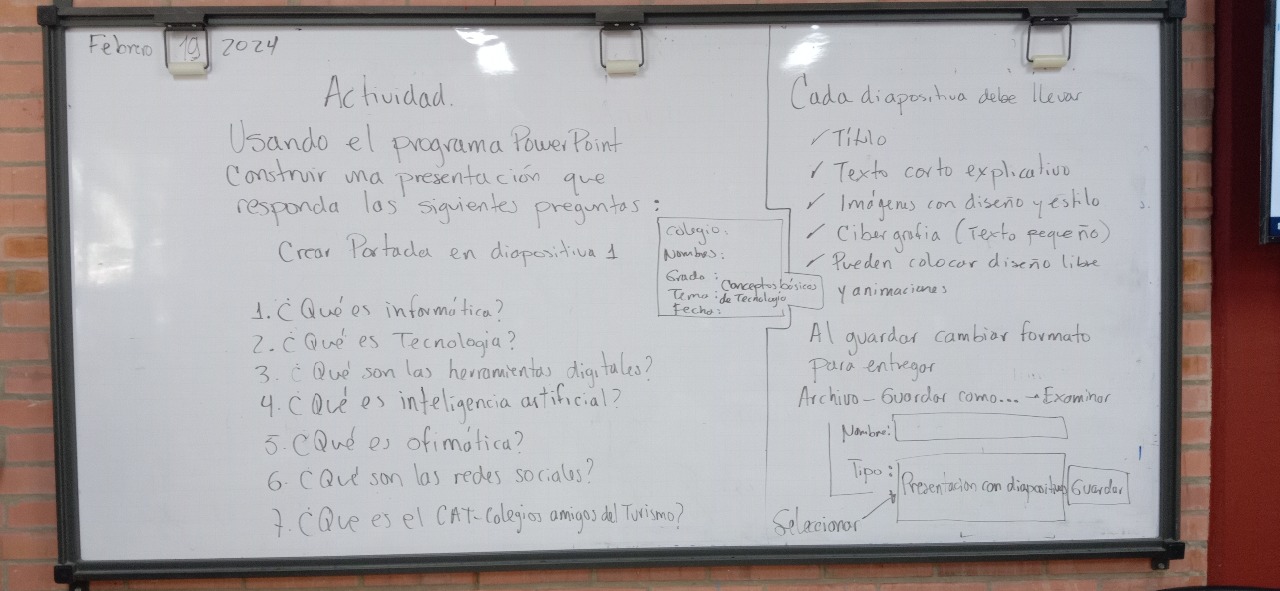 Febrero 19 2024
Actividad.
Usando el programa PowerPoint
Construir una presentación que
responda las siguientes preguntas:
Crear Portada en diapositiva 1
Colegio:
Nombres:
Grado:
Tema: Conceptos básicos
de Tecnología
Fecha:
1. ¿Qué es informática?
2. ¿Qué es Tecnologia?
3. ¿Qué son las herramientas digitales?
4. ¿Qué es inteligencia artificial?
5. ¿Qué es ofimática?
6. ¿Qué son las redes sociales?
7. ¿Que es el CAT-Colegios amigos del Turismo?
Cada diapositiva debe llevar
✓ Título
✓ Texto corto explicativo
✓ Imágenes con diseño y estilo
✓ Cibergrafia (Texto pequeño)
✓ Pueden colocar diseño libre
y animaciones
Al guardar cambiar formato
para entregar
Archivo - Guardar como... → Examinar
Nombre:
Tipo: Presentacion con diapositivas
Guardar
Seleccionar